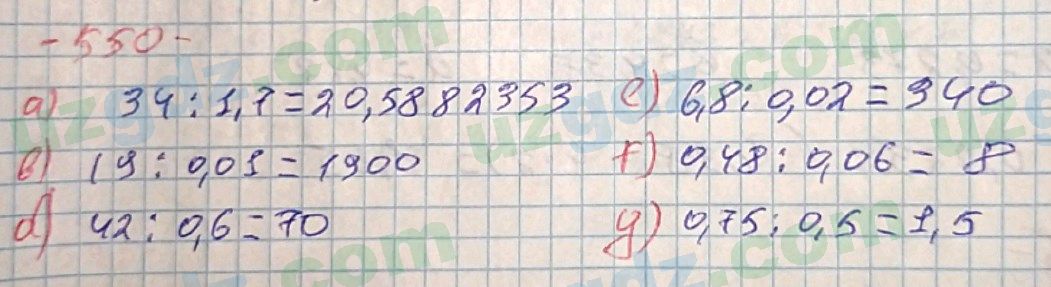 -550-
a) 34 : 1,7 = 20,5882353 e) 6,8 : 0,02 = 340
b) 19 : 0,01 = 1900 f) 0,48 : 0,06 = 8
d) 42 : 0,6 = 70 g) 0,75 : 0,5 = 1,5
uzgdz.com